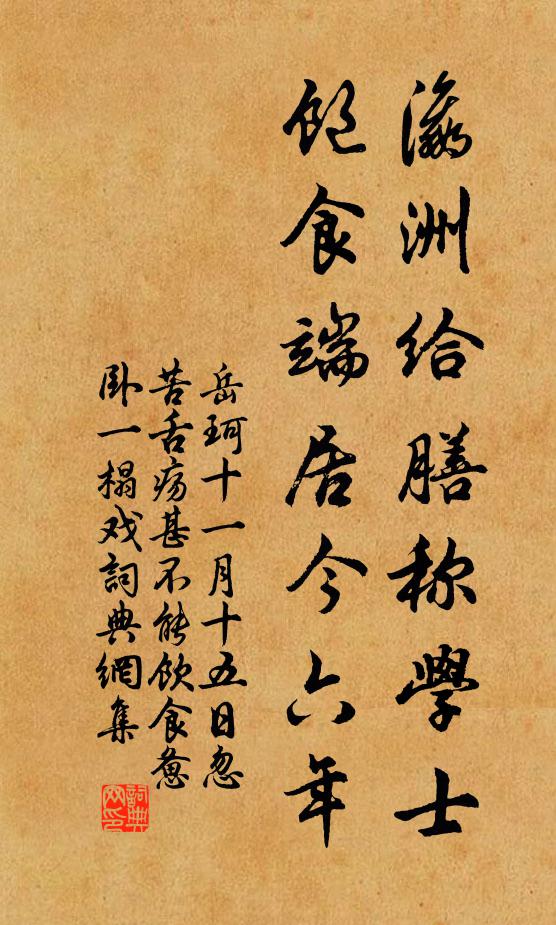 瀛洲給膳称學士
飽食端居今六年
岳珂十一月十五日忽
苦舌疡甚不能飲食惫
卧一榻戏詞典網集
詞典网印